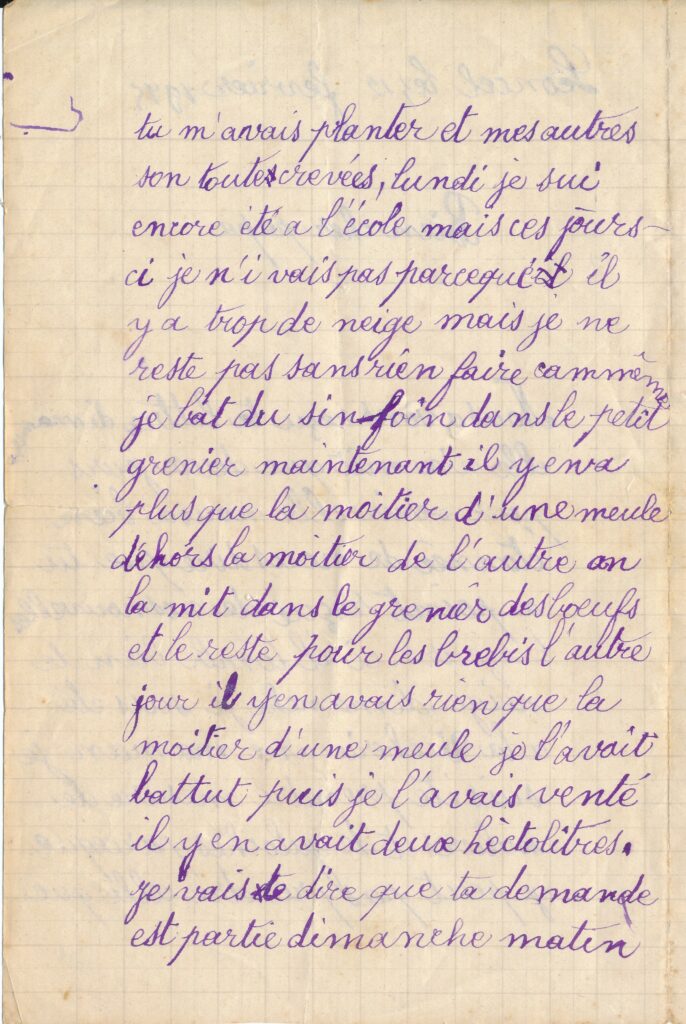 tu m'avais planter et mes autres
son toutes crevées, lundi je sui
encore été a l'école mais ces jours-
ci je n'i vais pas parcequé il
y a trop de neige mais je ne
reste pas sans rien faire cammême
je bat du sinfoin dans le petit
grenier maintenant il y en a
plus que la moitier d'une meule
déhors la moitier de l'autre on
la mit dans le grenier des boeufs
et le reste pour les brebis l'autre
jour il y en avais rien que la
moitier d'une meule je l'avait
battut puis je l'avais venté
il y en avait deux hèctolitres.
je vais te dire que ta demande
est partie dimanche matin